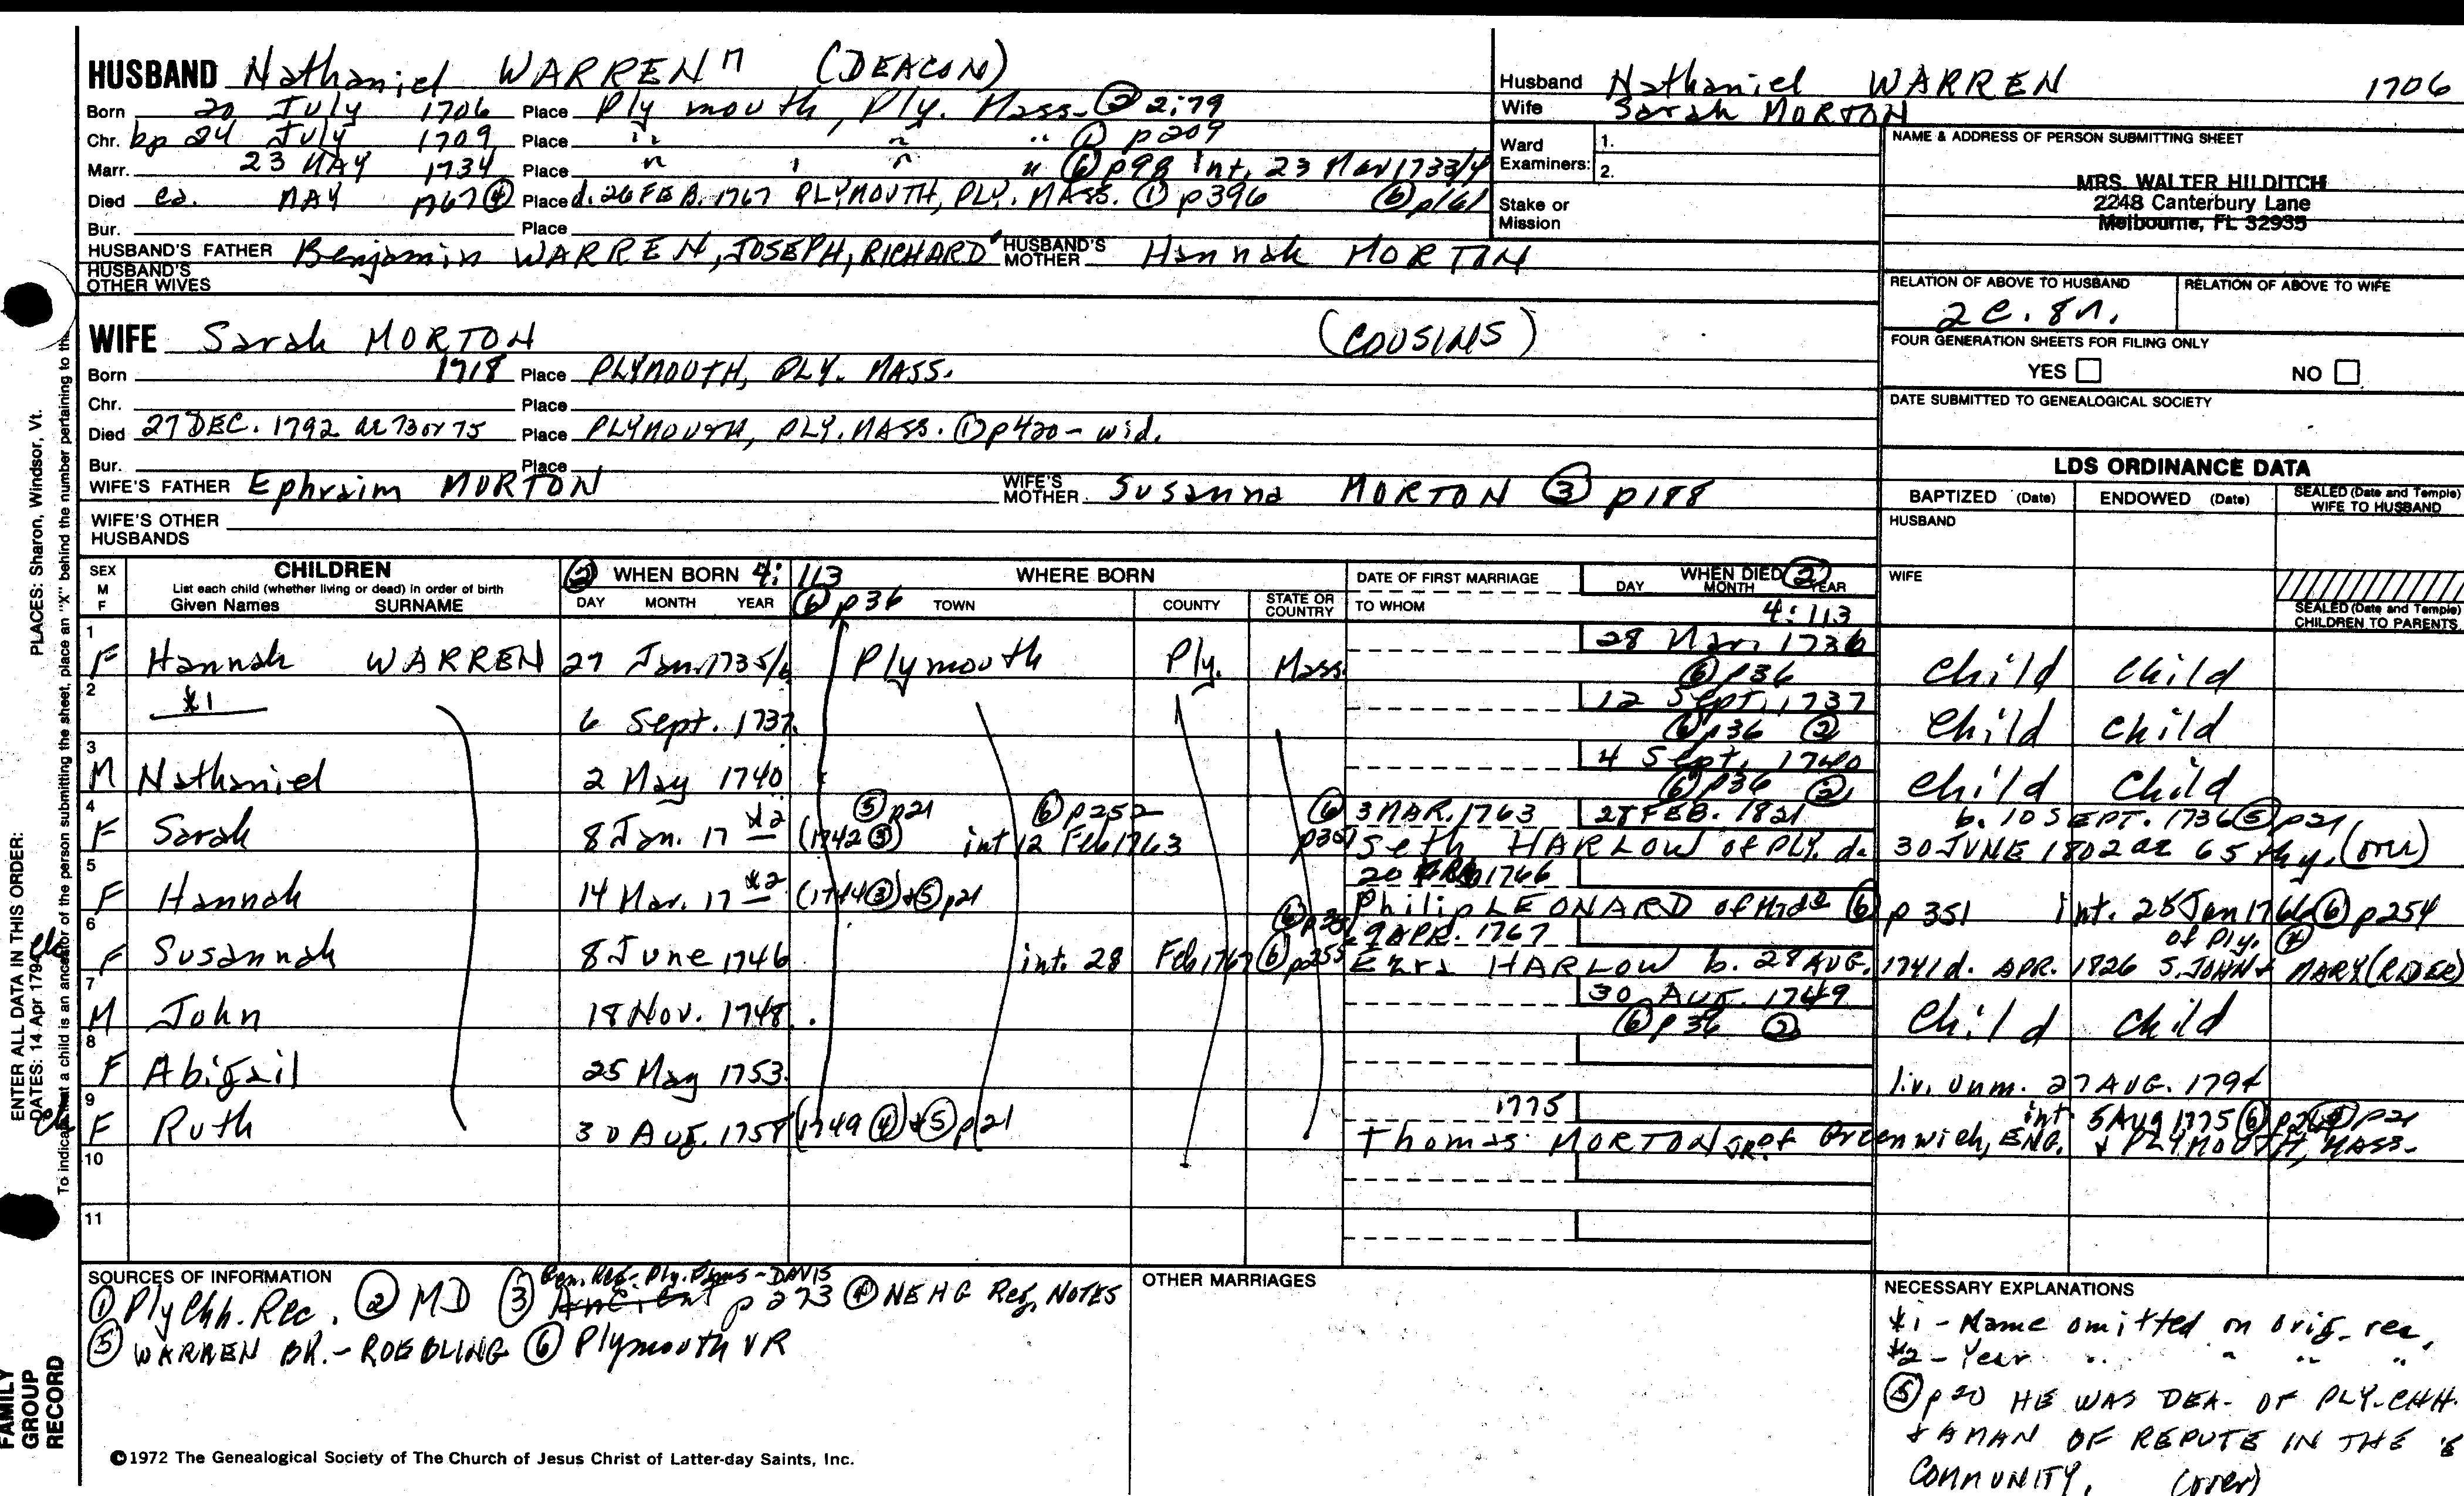 HUSBAND Nathaniel WARREN (DEACON)
Born 20 July 1706 Place Plymouth, Ply. Mass. ② 2:79
Chr. bp 24 July 1709 Place " " " ① p209
Marr. 23 MAY 1734 Place " " " ⑥ p98 int. 23 Mar 1733/4
Died ca. MAY 1767 ④ Place d. 26 FEB. 1767 PLYMOUTH, PLY. MASS. ① p396 ⑥ p161
Bur. Place
HUSBAND'S FATHER Benjamin WARREN, JOSEPH, RICHARD HUSBAND'S MOTHER Hannah MORTON
HUSBAND'S OTHER WIVES
WIFE Sarah MORTON (COUSINS)
Born 1718 Place PLYMOUTH, PLY. MASS.
Chr. Place
Died 27 DEC. 1792 ae 73 or 75 Place PLYMOUTH, PLY. MASS. ① p420 - wid.
Bur. Place
WIFE'S FATHER Ephraim MORTON WIFE'S MOTHER Susanna MORTON ③ p188
WIFE'S OTHER HUSBANDS
Husband Nathaniel WARREN 1706
Wife Sarah MORTON
Ward Examiners: 1.
2.
Stake or Mission
NAME & ADDRESS OF PERSON SUBMITTING SHEET
MRS. WALTER HILDITCH
2248 Canterbury Lane
Melbourne, FL 32935
RELATION OF ABOVE TO HUSBAND RELATION OF ABOVE TO WIFE
2c. 8r.
FOUR GENERATION SHEETS FOR FILING ONLY
YES NO
DATE SUBMITTED TO GENEALOGICAL SOCIETY
LDS ORDINANCE DATA
BAPTIZED (Date) ENDOWED (Date) SEALED (Date and Temple) WIFE TO HUSBAND
HUSBAND
WIFE
SEALED (Date and Temple) CHILDREN TO PARENTS
SEX M F CHILDREN List each child (whether living or dead) in order of birth Given Names SURNAME
② WHEN BORN 4:113 DAY MONTH YEAR ⑥ p36 WHERE BORN TOWN COUNTY STATE OR COUNTRY
DATE OF FIRST MARRIAGE TO WHOM WHEN DIED ② DAY MONTH YEAR 4:113
1 F Hannah WARREN 27 Jan. 1735/6 Plymouth Ply. Mass. 28 Mar. 1736 ⑥ p36 child child
2 *1 6 Sept. 1737. 12 Sept. 1737 ⑥ p36 ② child child
3 M Nathaniel 2 May 1740 4 Sept. 1740 ⑥ p36 ② child child
4 F Sarah 8 Jan. 17 *2 (1742 ③) ⑤ p21 int 12 Feb 1763 ⑥ p252 ⑥ 3 MAR. 1763 28 FEB. 1821 b. 10 SEPT. 1736 ⑤ p21
Seth HARLOW of PLY. d. 30 JUNE 1802 ae 65 thy. (over)
5 F Hannah 14 Mar. 17 *2 (1744 ③) + ⑤ p21 20 1766
Philip LEONARD of ⑥ p 351 int. 25 Jan 1766 ⑥ p254
6 F Susannah 8 June 1746 int. 28 Feb 1767 ⑥ p255 9 APR. 1767 of Ply. ④
Ezra HARLOW b. 28 AUG. 1741 d. APR. 1826 S. JOHN + MARY (RIDER)
7 M John 18 Nov. 1748 30 Aug. 1749 ⑥ p36 ② child child
8 F Abigail 25 May 1753. liv. unm. 27 AUG. 1794
9 F Ruth 30 Aug. 1758 (1749 ④) + ⑤ p21 1775 int 5 AUG 1775 ⑥ p21
Thomas MORTON JR. of Greenwich, ENG. + PLYMOUTH, MASS.
10
11
SOURCES OF INFORMATION
① Ply Chh. Rec. ② MD ③ Gen. Reg. Ply. Fams - DAVIS Ancient p 273 ④ NEHG Reg. NOTES
⑤ WARREN BK. - ROEBLING ⑥ Plymouth VR
OTHER MARRIAGES
NECESSARY EXPLANATIONS
*1 - Name omitted on orig. rec.
*2 - Year " " " "
⑤ p20 HE WAS DEA. OF PLY. CHH.
+ A MAN OF REPUTE IN THE
COMMUNITY. (over)
©1972 The Genealogical Society of The Church of Jesus Christ of Latter-day Saints, Inc.
FAMILY GROUP RECORD
ENTER ALL DATA IN THIS ORDER:
DATES: 14 Apr 1794
PLACES: Sharon, Windsor, Vt.
To indicate that a child is an ancestor of the person submitting the sheet, place an "X" behind the number pertaining to the